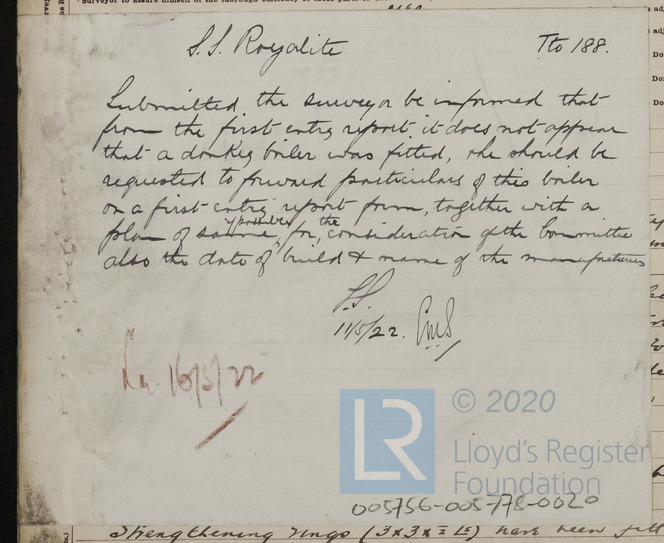 Surveyor to assure himself of the thorough efficiency of these parts of
S.S. Royalite Tto 188.
Submitted the surveyor be informed that
from the first entry report, it does not appear
that a donkey boiler was fitted, & he should be
requested to forward particulars of this boiler
on a first entry report form, together with a
if possible
plan of same, for the consideration of the Committee
also the date of build & name of the manufacturers
11/5/22.
16/5/22
LR
© 2020
Lloyd's Register
Foundation
005756-005778-0020
Strengthening rings (3x3x
have been